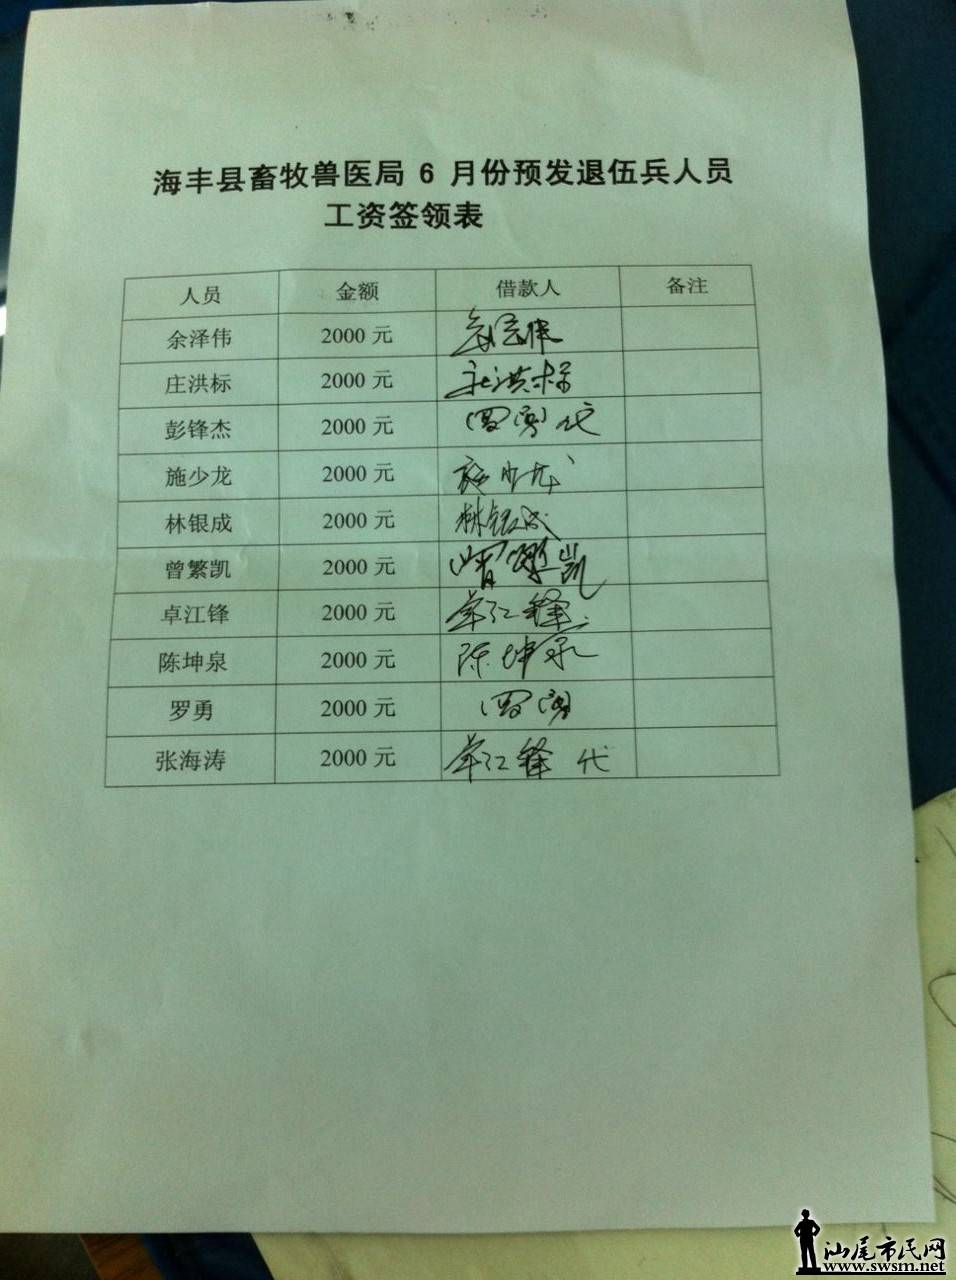 海丰县畜牧兽医局 6 月份预发退伍兵人员
工资签领表
人员 金额 借款人 备注
余泽伟 2000 元 余泽伟
庄洪标 2000 元 庄洪标
彭锋杰 2000 元 罗勇代
施少龙 2000 元 施少龙
林银成 2000 元 林银成
曾繁凯 2000 元 曾繁凯
卓江锋 2000 元 卓江锋
陈坤泉 2000 元 陈坤泉
罗勇 2000 元 罗勇
张海涛 2000 元 卓江锋 代
汕尾市民网
www.swsm.net